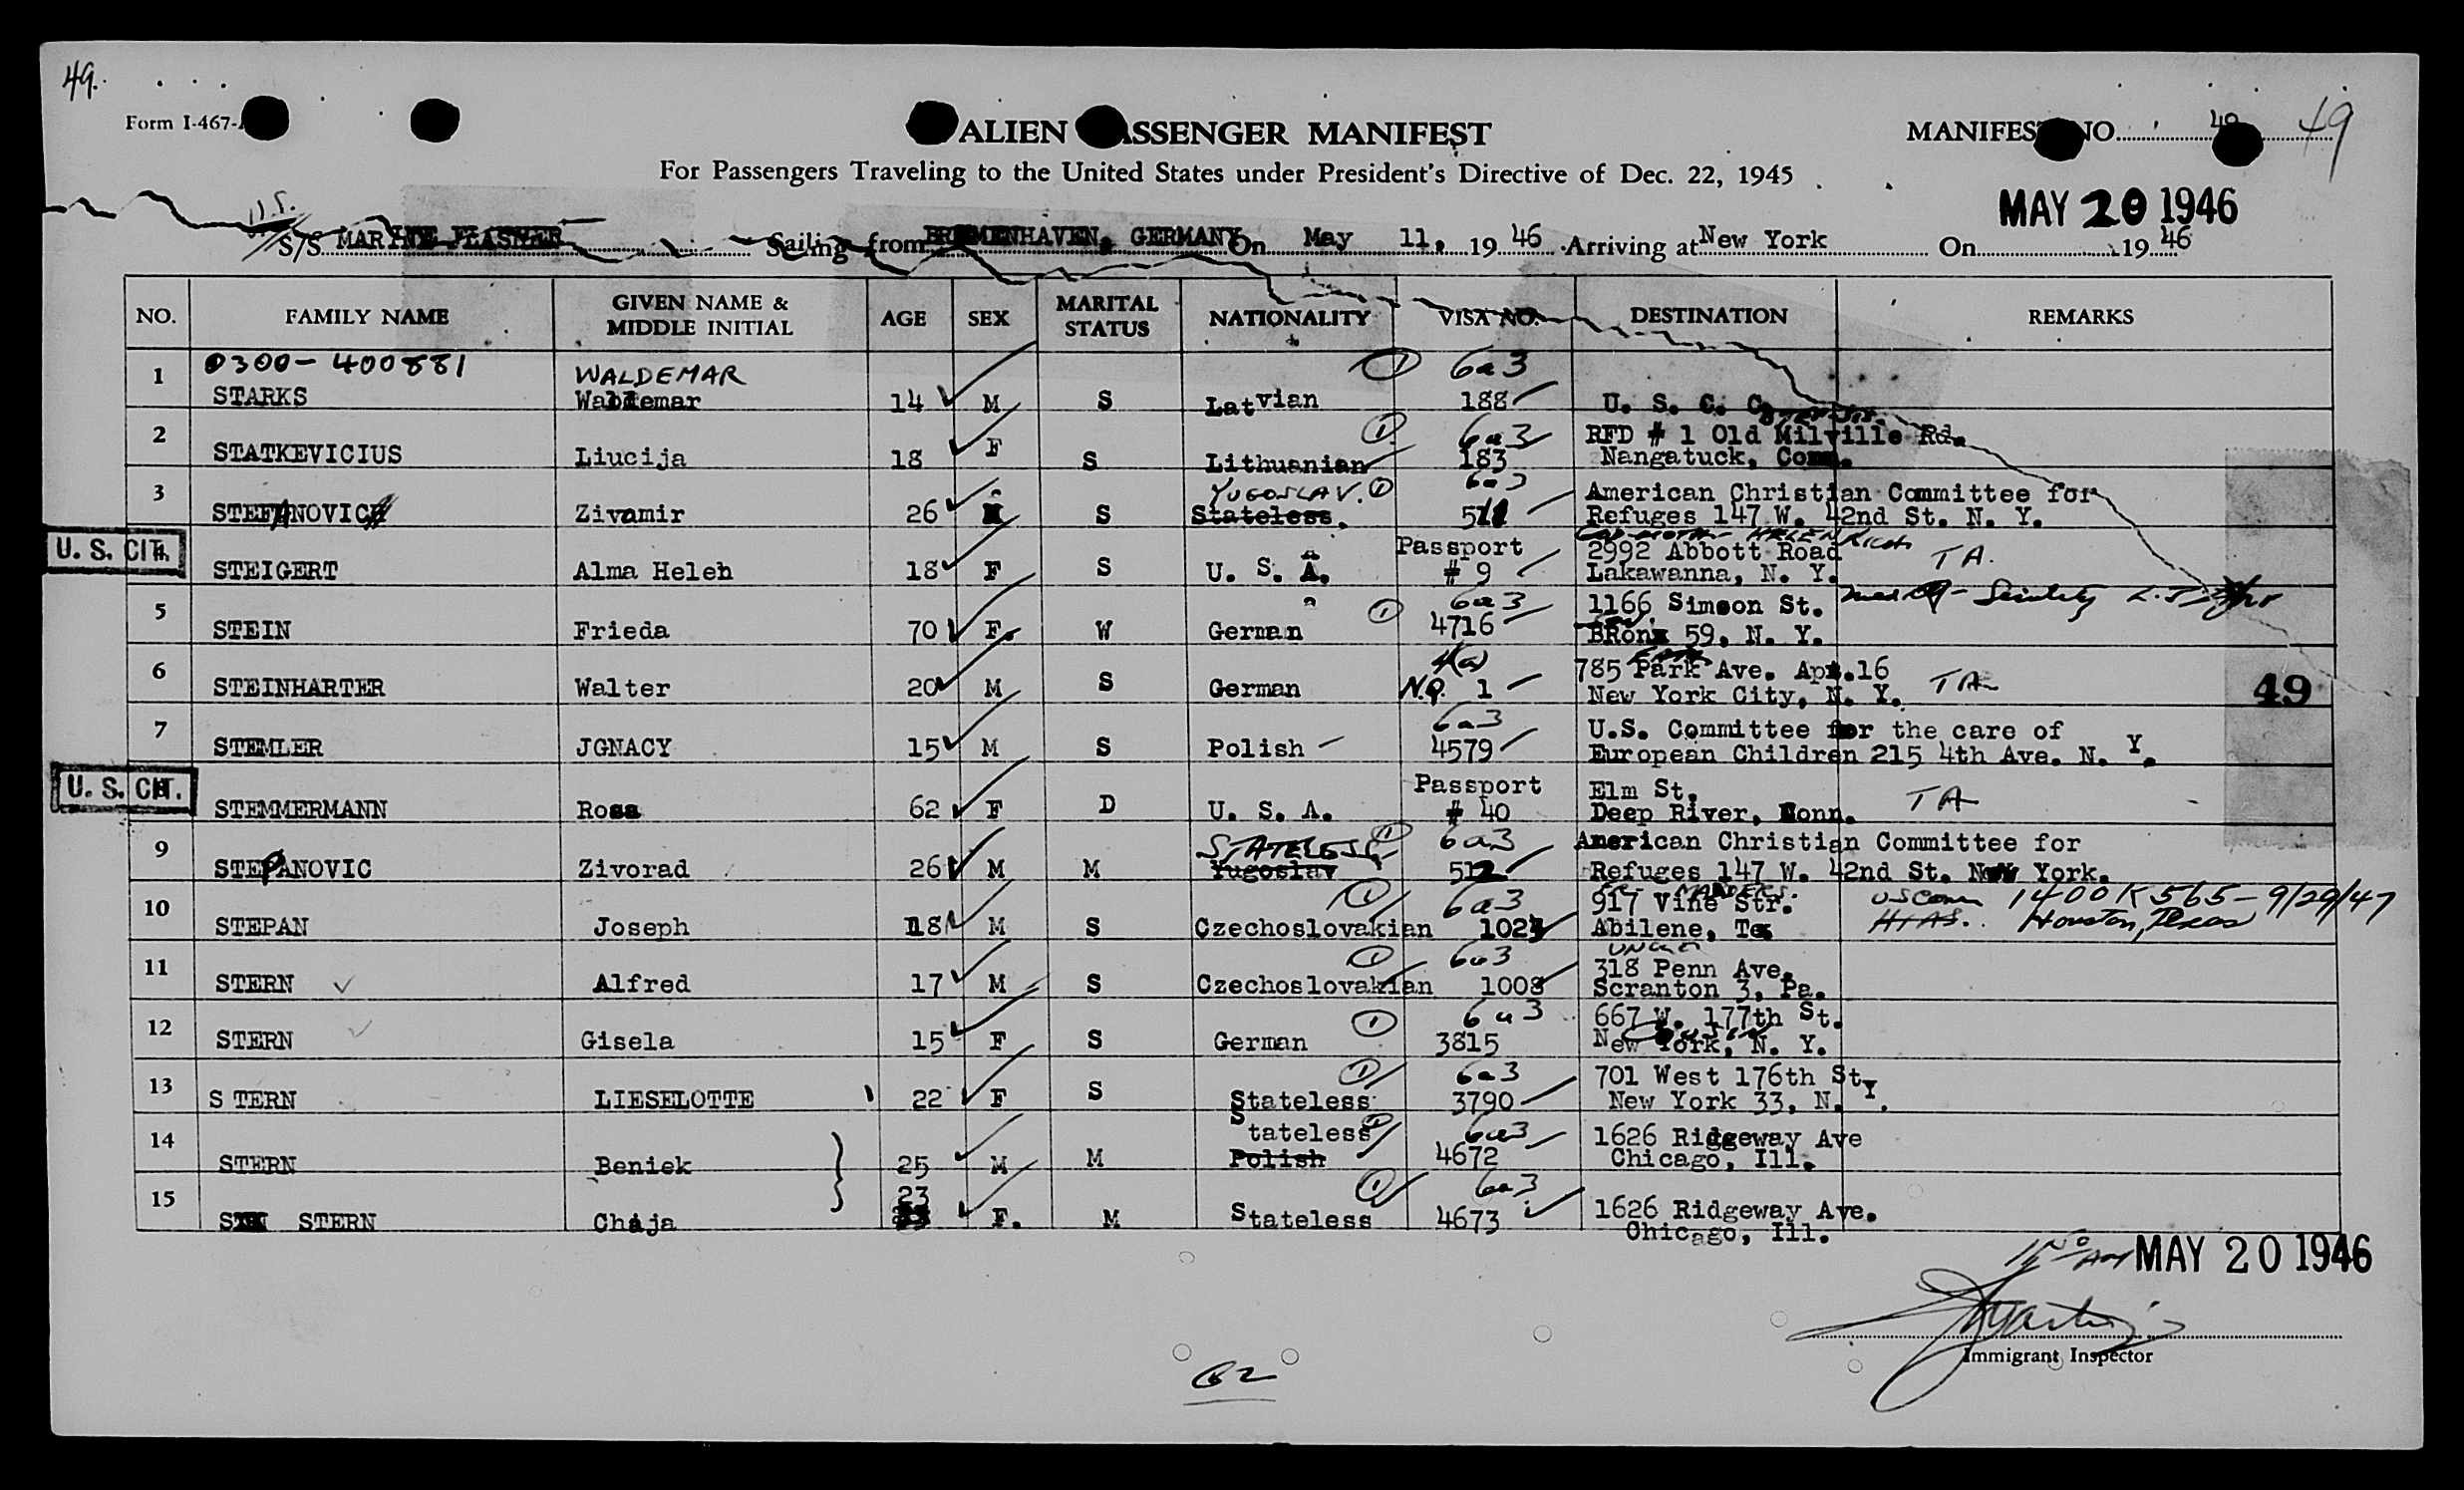 49.
Form I-467-
ALIEN PASSENGER MANIFEST
MANIFEST NO. 49
For Passengers Traveling to the United States under President's Directive of Dec. 22, 1945
MAY 20 1946
S/S MARINE FLASHER Sailing from BREMENHAVEN, GERMANY On May 11, 19 46 Arriving at New York On 19 46
NO. FAMILY NAME GIVEN NAME & MIDDLE INITIAL AGE SEX MARITAL STATUS NATIONALITY VISA NO. DESTINATION REMARKS
0300-400881 WALDEMAR 6a3
1 STARKS Waldemar 14 M S Latvian 188 U. S. C. C.
2 STATKEVICIUS Liucija 18 F S Lithuanian 6a3 183 RFD # 1 Old Milville Rd.
Nangatuck, Conn.
3 STEFANOVICH Zivamir 26 M S YUGOSLAV. Stateless. 6a3 511 American Christian Committee for
Refuges 147 W. 42nd St. N. Y.
U. S. CIT. STEIGERT Alma Heleh 18 F S U. S. A. Passport # 9 2992 Abbott Road
Lakawanna, N. Y. TA.
5 STEIN Frieda 70 F. W German 6a3 4716 1166 Simson St.
BRonx 59, N. Y.
6 STEINHARTER Walter 20 M S German 4(a) N.Q. 1 785 Park Ave. Apt.16
New York City, N. Y. TA
49
7 STEMLER JGNACY 15 M S Polish 6a3 4579 U.S. Committee for the care of
European Children 215 4th Ave. N. Y.
U. S. CIT. STEMMERMANN Rosa 62 F D U. S. A. Passport # 40 Elm St.
Deep River, Conn. TA
9 STEPANOVIC Zivorad 26 M M STATELESS Yugoslav 6a3 512 American Christian Committee for
Refuges 147 W. 42nd St. New York.
10 STEPAN Joseph 18 M S Czechoslovakian 6a3 1023 917 Vine Str.
Abilene, Tex US Com HIAS. 1400 K 565 - 9/29/47
Houston, Texas
11 STERN Alfred 17 M S Czechoslovakian 6a3 1008 UNCLE 318 Penn Ave.
Scranton 3, Pa.
12 STERN Gisela 15 F S German 6a3 3815 667 W. 177th St.
New York, N. Y.
13 S TERN LIESELOTTE 22 F S Stateless 6a3 3790 701 West 176th St.
New York 33, N. Y.
14 STERN Beniek 25 M M Stateless Polish 6a3 4672 1626 Ridgeway Ave
Chicago, Ill.
15 STERN Chaja 23 F. M Stateless 6a3 4673 1626 Ridgeway Ave.
Chicago, Ill.
MAY 20 1946
Immigrant Inspector